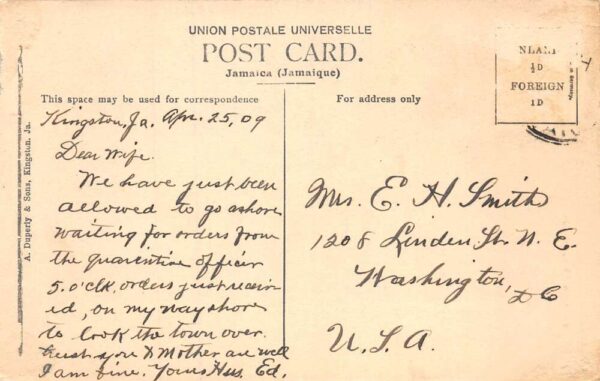 UNION POSTALE UNIVERSELLE
POST CARD.
Jamaica (Jamaique)
This space may be used for correspondence
For address only
½D
FOREIGN
1D
A. Duperly & Sons, Kingston, Ja.
Kingston, Ja. Apr. 25, 09
Dear Wife.
We have just been
allowed to go ashore
waiting for orders from
the quarentine officer
5. o'clk, orders just receiv
ed, on my way shore
to look the town over.
Trust you & Mother are well
I am fine. Yours Hus. Ed.
Mrs. E. H. Smith
1208 Linden St. N. E.
Washington,
D C
U. S. A.